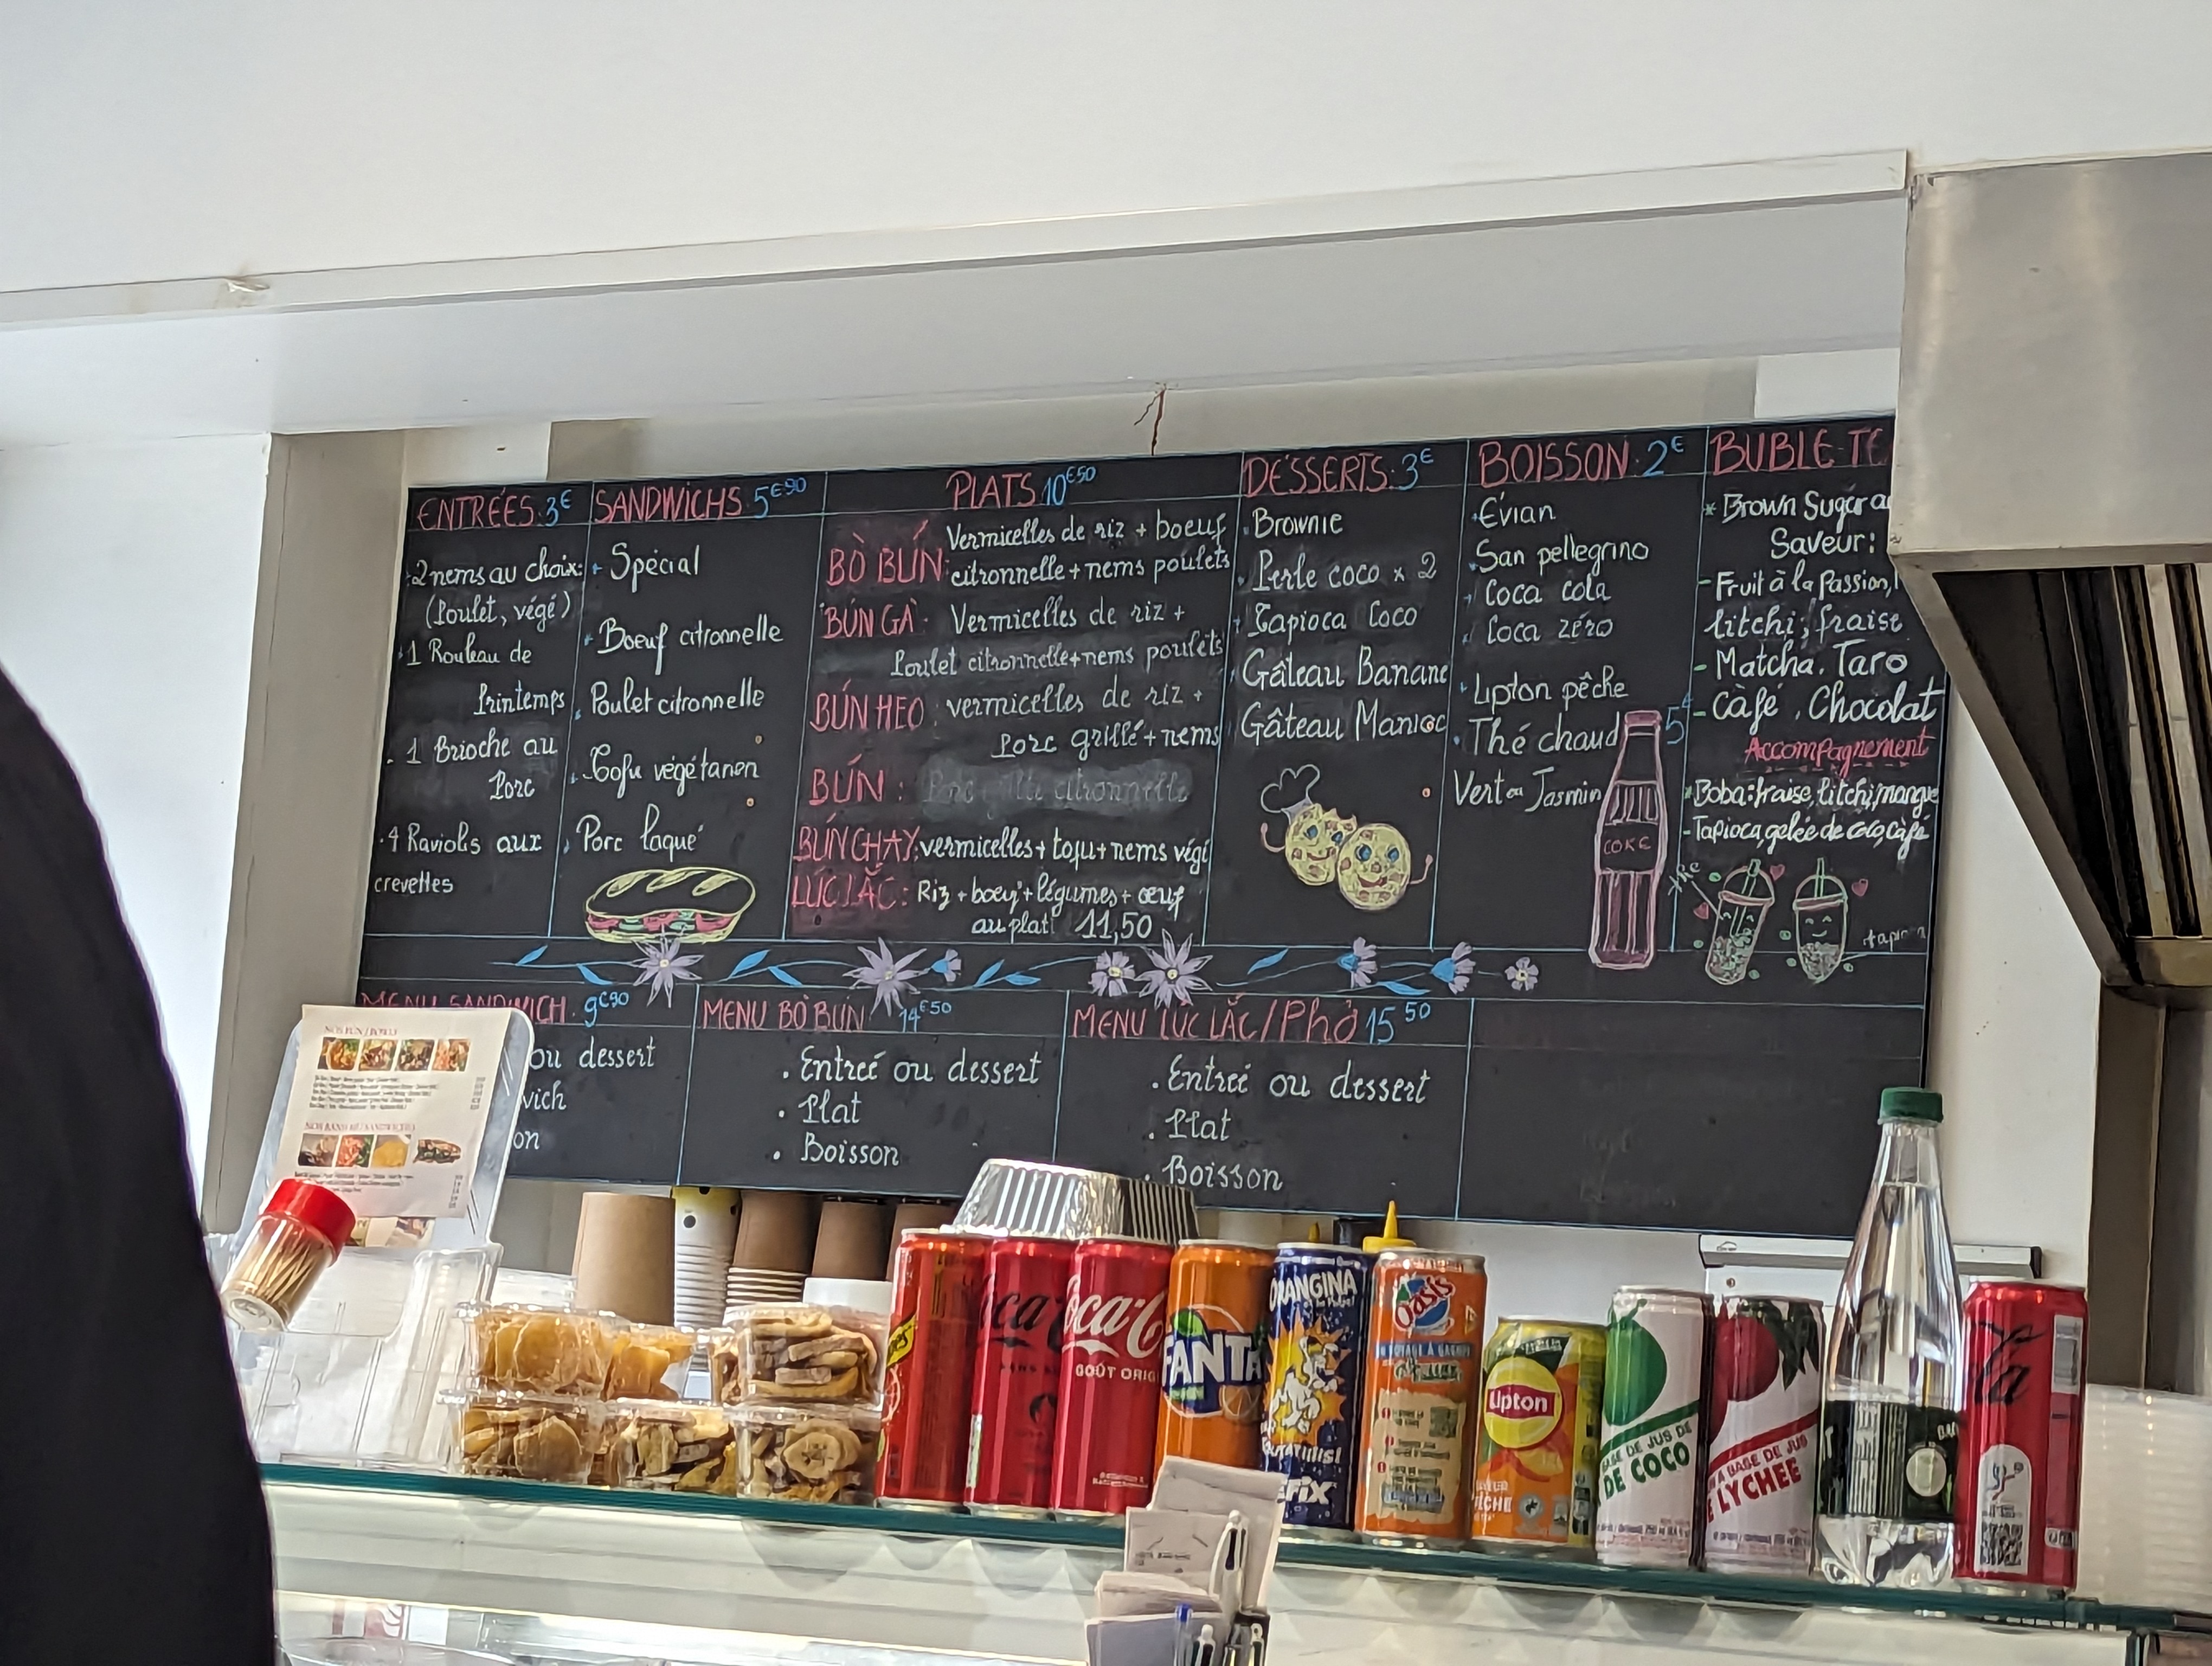 ENTRÉES. 3€
2 nems au choix:
(Poulet, végé)
1 Rouleau de
Printemps
1 Brioche au
Porc
4 Raviolis aux
crevettes
SANDWICHS 5€90
Spécial
Boeuf citronnelle
Poulet citronnelle
Tofu végétarien
Porc laqué
PLATS 10€50
BÒ BÚN: Vermicelles de riz + boeuf
citronnelle + nems poulets
BÚN GÀ: Vermicelles de riz +
Poulet citronnelle + nems poulets
BÚN HEO: vermicelles de riz +
Porc grillé + nems
BÚN :
BÚN CHAY: vermicelles + tofu + nems végé
LÚC LẮC: Riz + boeuf + légumes + œuf
au plat 11,50
DESSERTS. 3€
Brownie
Perle coco x 2
Tapioca Coco
Gâteau Banane
Gâteau Manioc
BOISSON. 2€
Evian
San pellegrino
Coca cola
Coca zéro
Lipton pêche
Thé chaud
Vert ou Jasmin
COKE
BUBLE TE
* Brown Sugar au
Saveur:
- Fruit à la Passion,
litchi, fraise
- Matcha, Taro
- Càfé, Chocolat
5€
Accompagnement
* Boba: fraise, litchi, mangue
- Tapioca, gelée de coco, càfé
MENU SANDWICH. 9€90
ou dessert
wich
on
MENU BÒ BÚN 14€50
. Entreé ou dessert
. Plat
. Boisson
MENU LÚC LẮC/Phở 15 50
. Entreé ou dessert
. Plat
. Boisson
oca-C
GOÛT ORIG
FANTA
ORANGINA
Oasis
Lipton
BASE DE JUS DE
DE COCO
A BASE DE JUS
E LYCHEE